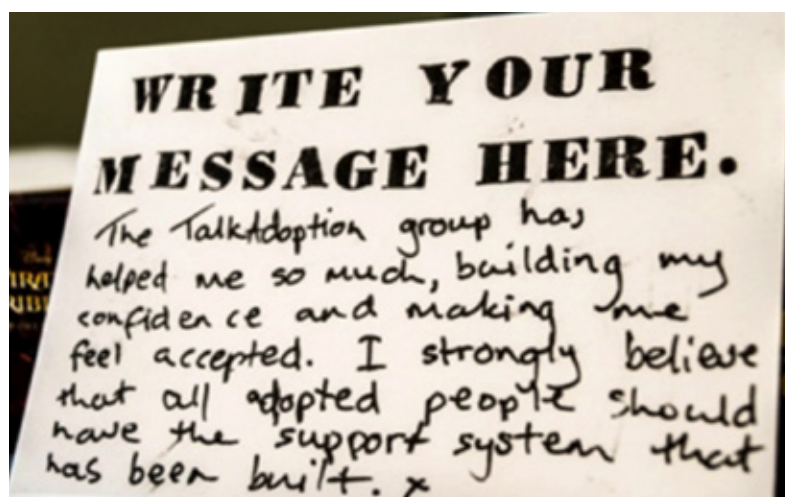 WRITE YOUR
MESSAGE HERE.
The TalkAdoption group has
helped me so much, building my
confidence and making me
feel accepted. I strongly believe
that all adopted people should
have the support system that
has been built. x